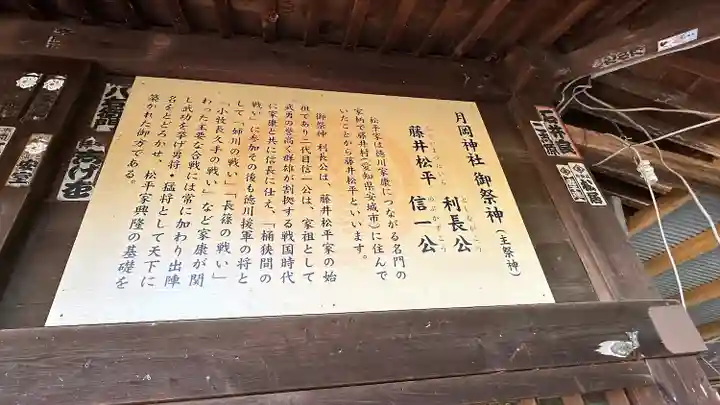 月岡神社 御祭神(主祭神)
藤井松平 利長公
信一公
松平家は徳川家康につながる名門の
家柄で藤井村(愛知県安城市)に住んで
いたことから藤井松平といいます。
御祭神 利長公は、藤井松平家の始
祖であり二代目信一公は、家祖として
武勇の誉高く群雄が割拠する戦国時代
に家康と共に信長に仕え、「桶狭間の
戦い」に参加その後も徳川援軍の将と
して「姉川の戦い」「長篠の戦い」
「小牧長久手の戦い」など家康が関
わった主要な合戦には常に加わり出陣
し武功を挙げ勇将・猛将として天下に
名をとどろかせ、松平家興隆の基礎を
築かれた御方である。